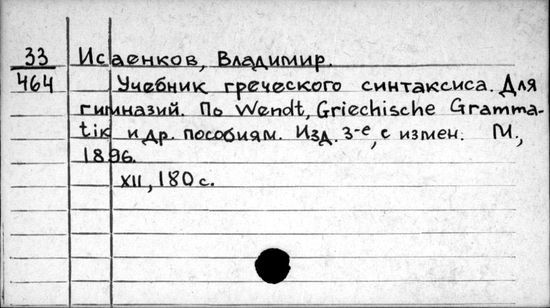 33 Исаенков, Владимир.
464 Учебник греческого синтаксиса. Для
гимназий. По Wendt, Griechische Gramma-
tik и др. пособиям. Изд. 3-е, с измен. М.,
1896.
XII, 180 с.